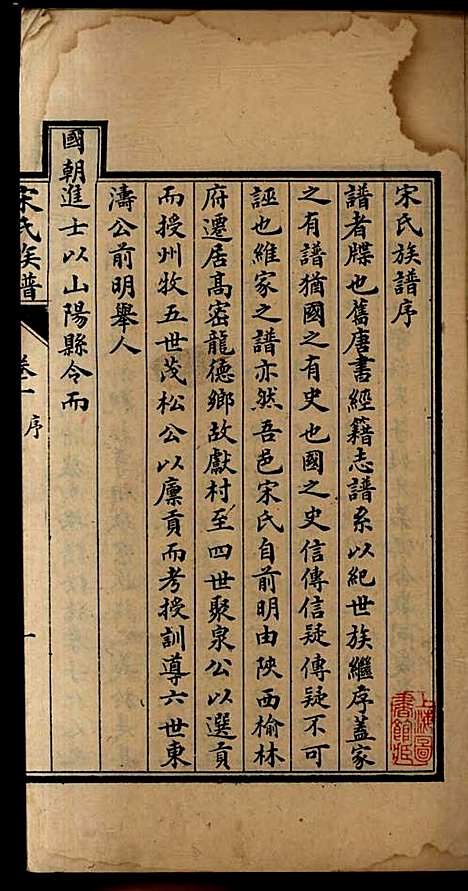 宋氏族譜序
譜者牒也舊唐書經籍志譜系以紀世族繼序蓋家
之有譜猶國之有史也國之史信傳信疑傳疑不可
誣也維家之譜亦然吾邑宋氏自前明由陝西榆林
府遷居高密龍德鄉故獻村至四世聚泉公以選貢
而授州牧五世茂松公以廩貢而考授訓導六世東
濤公前明舉人
國朝進士以山陽縣令而
宋氏族譜 卷一 序 一
上海圖書館藏